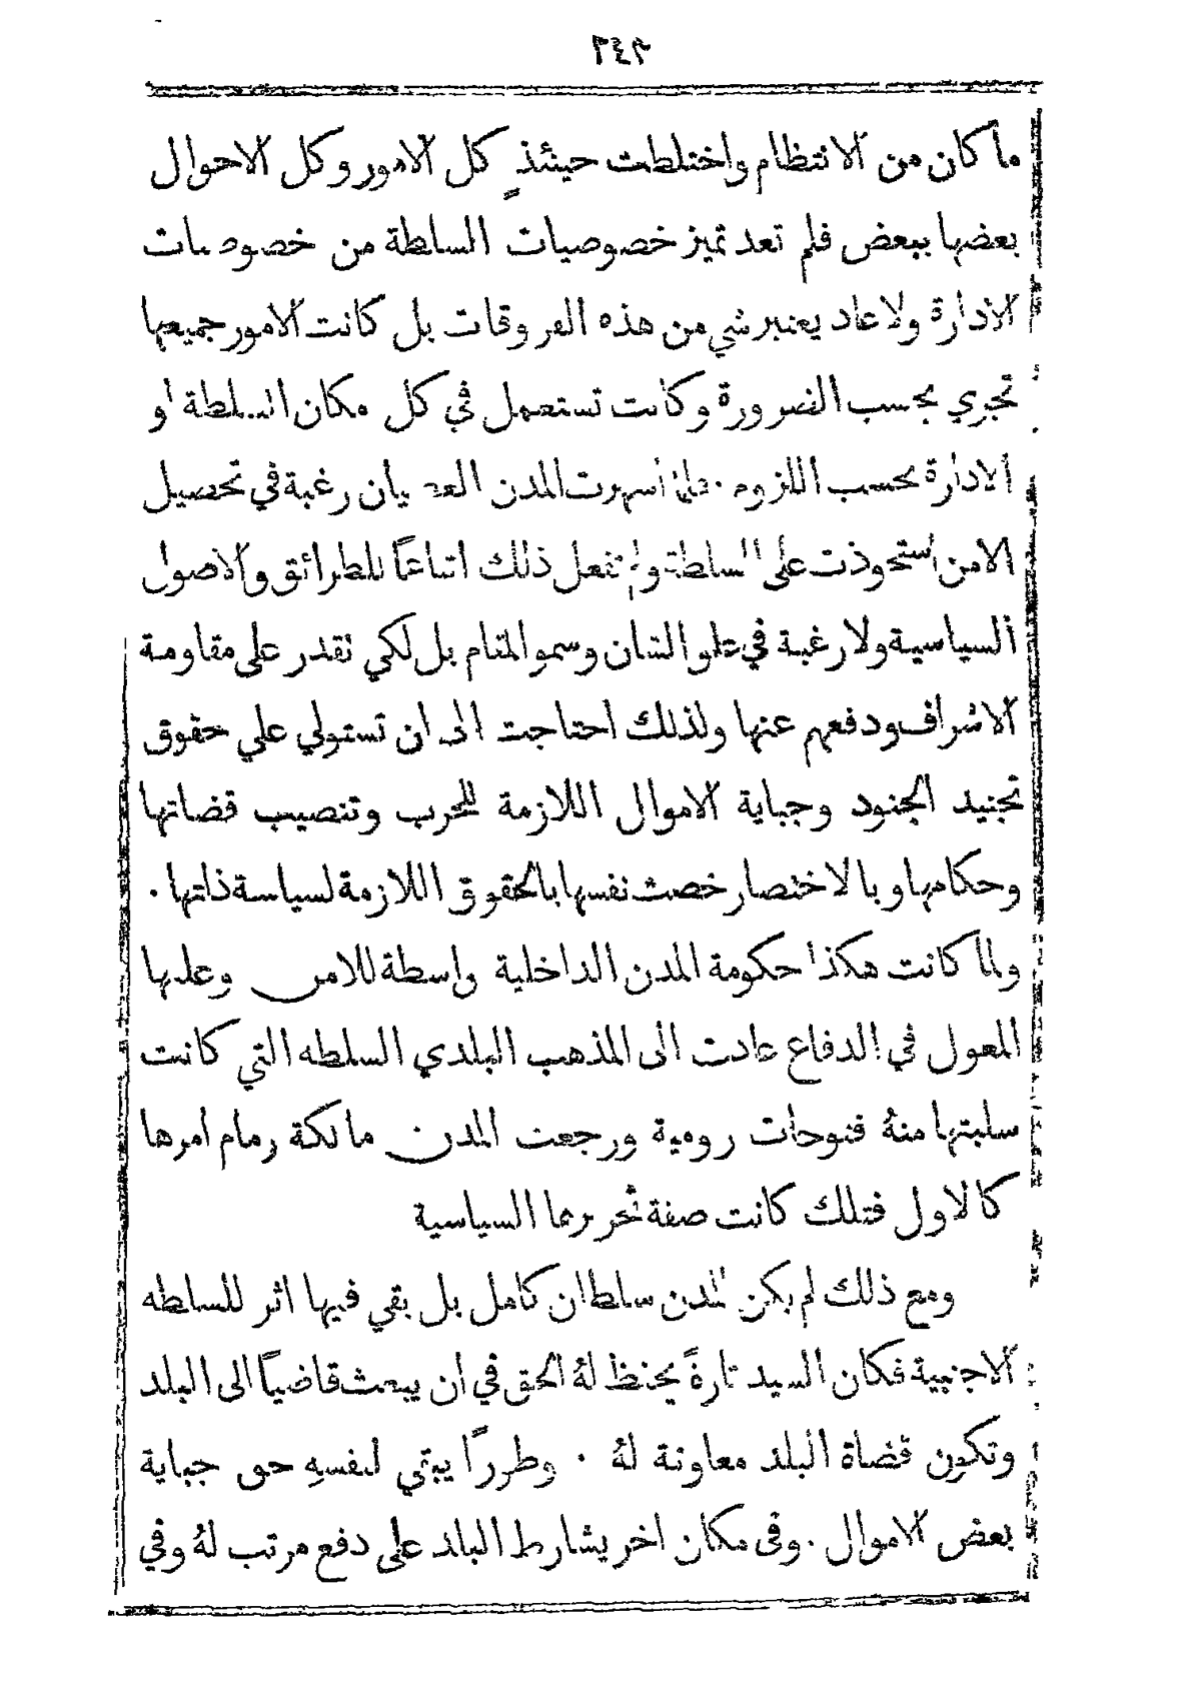 ٢٤٩
ما كان من الانتظام واختلطت حينئذٍ كل الامور وكل الاحوال
بعضها ببعض فلم تعد تميز خصوصيات السلطة من خصوصيات
الادارة ولا عاد يعتبر شي من هذه الفروقات بل كانت الامور جميعها
تجري بحسب الضرورة وكانت تستعمل في كل مكان السلطة او
الادارة بحسب اللزوم . فلما اشهرت المدن العصيان رغبة في تحصيل
الامن استحوذت على السلطة ولم تفعل ذلك اتباعًا للطرائق والاصول
السياسية ولا رغبة في علو الشان وسمو المقام بل لكي تقدر على مقاومة
الاشراف ودفعهم عنها ولذلك احتاجت الى ان تستولي علي حقوق
تجنيد الجنود وجباية الاموال اللازمة للحرب وتنصيب قضاتها
وحكامها وبالاختصار خصت نفسها بالحقوق اللازمة لسياسة ذاتها .
ولما كانت هكذا حكومة المدن الداخلية واسطة للامن وعليها
المعول في الدفاع عادت الى المذهب البلدي السلطه التي كانت
سلبتها منهُ فتوحات رومية ورجعت المدن مالكة زمام امرها
كالاول فتلك كانت صفة تحريرها السياسية
ومع ذلك لم يكن للمدن سلطان كامل بل بقي فيها اثر للسلطه
الاجنبية فكان السيد تارةً يحفظ لهُ الحق في ان يبعث قاضيًا الى البلد
وتكون قضاة البلد معاونة لهُ . وطررًا يبقي لنفسهِ حق جباية
بعض الاموال . وفى مكان اخر يشارط البلد على دفع مرتب لهُ وفي